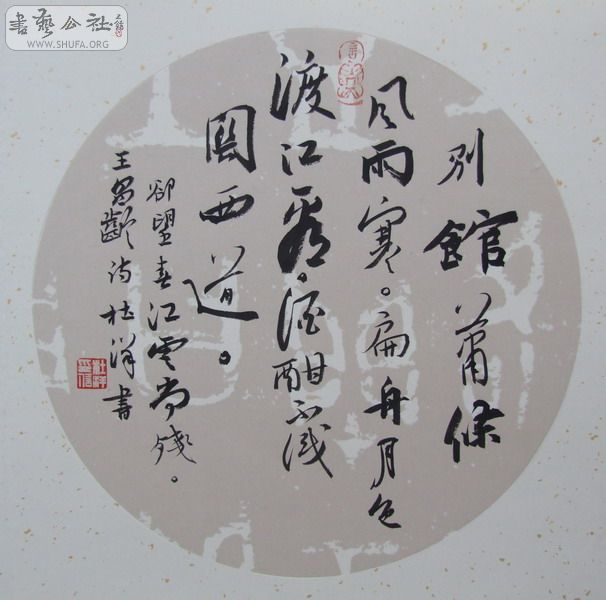 書藝公社
WWW.SHUFA.ORG
别館蕭條
风雨寒。扁舟月色
渡江看。酒酣不識
関西道。
卻望春江雲尚殘。
王昌齡诗杜洋書